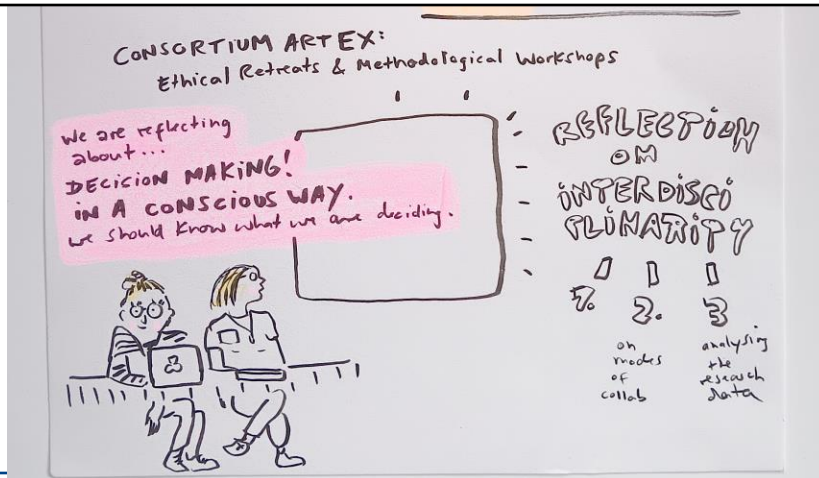 CONSORTIUM ARTEX:
Ethical Retreats & Methodological Workshops
We are reflecting
about...
DECICION MAKING!
IN A CONSCIOUS WAY.
we should know what we are deciding.
REFLECTION
ON
INTERDISCI
PLINARITY
1. 2. 3
on
modes
of
collab
analysing
the
research
data